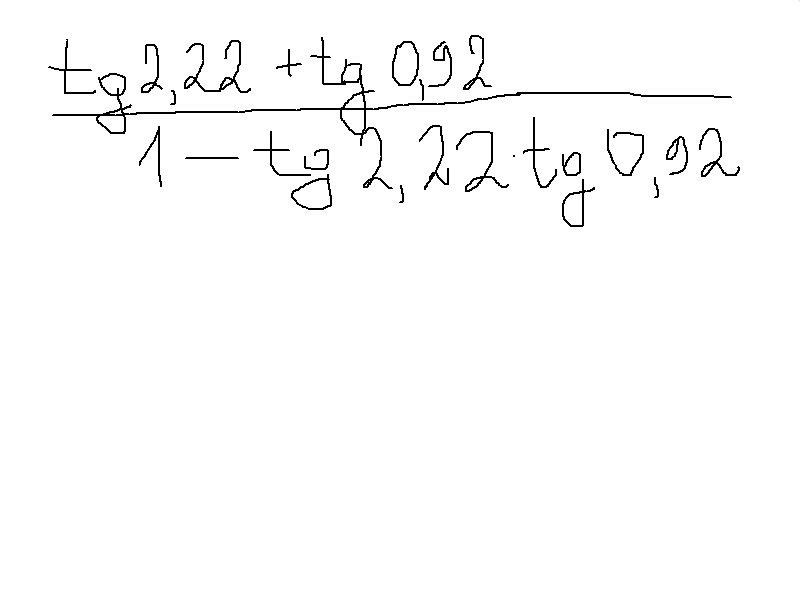 tg 2,22 + tg 0,92
1 — tg 2,22 · tg 0,92